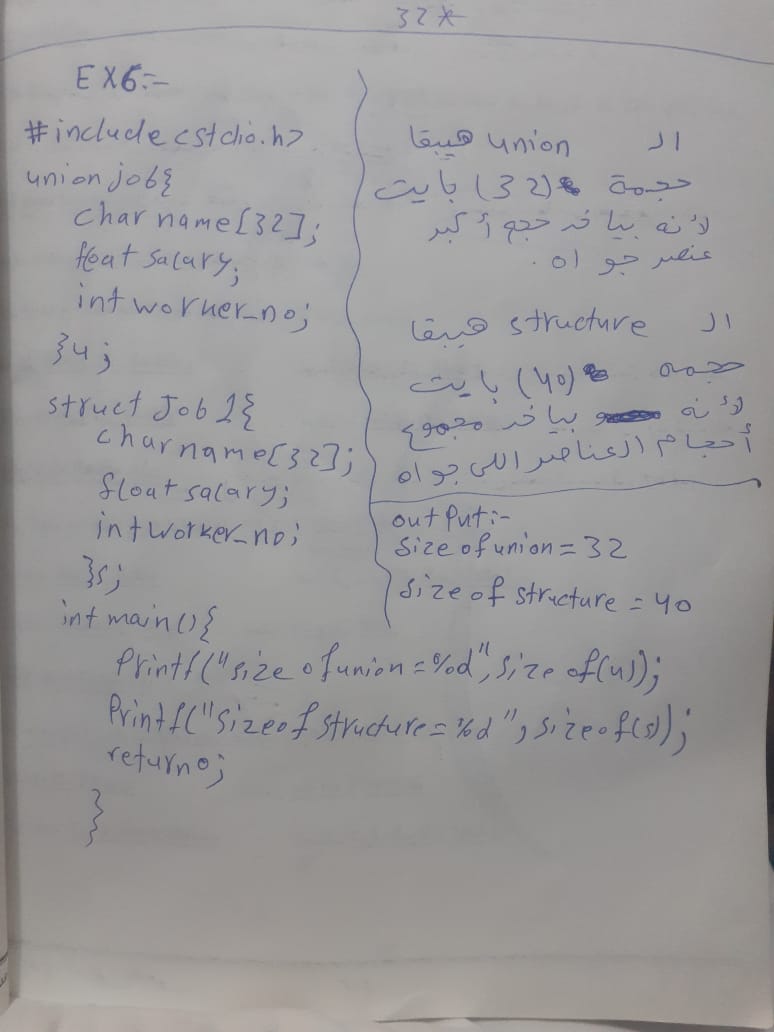 32*
EX6:-
#include <stdio.h>
union job{
char name[32];
float salary;
int worker_no;
}u;
struct Job1{
char name[32];
float salary;
int worker_no;
}s;
int main(){
Printf("size of union=%d", size of(u));
Printf("sizeof structure=%d", sizeof(s));
return 0;
}
الـ union هيبقا
حجمة (32) بايت
لأنه بياخد حجم أكبر
عنصر جواه.
الـ structure هيبقا
حجمه (40) بايت
لأنه بياخد مجموع
أحجام العناصر اللي جواه
output:-
Size of union = 32
Size of structure = 40